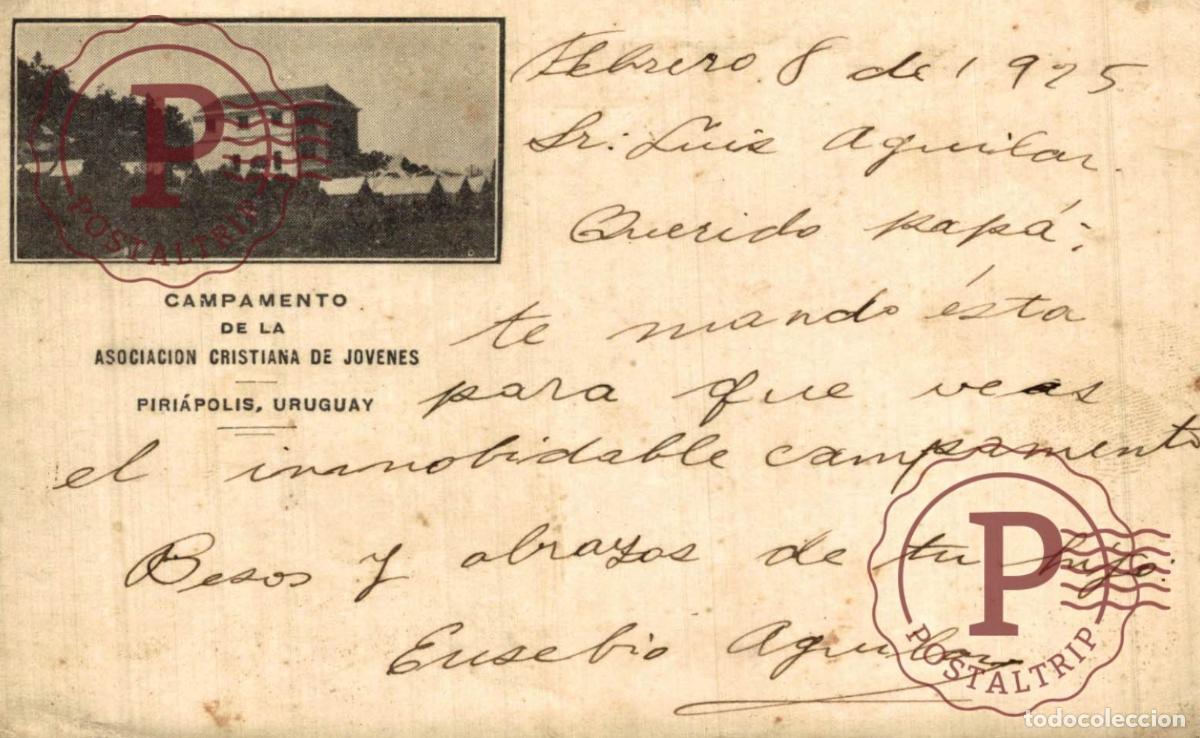 Febrero 8 de 1925
Sr: Luis Aguilar.
Querido papá:
te mando ésta
para que veas
el innobidable campamento
Besos y abrazos de tu hijo.
Eusebio Aguilar
CAMPAMENTO
DE LA
ASOCIACION CRISTIANA DE JOVENES
PIRIÁPOLIS, URUGUAY
P
POSTALTRIP
P
POSTALTRIP
todocoleccion